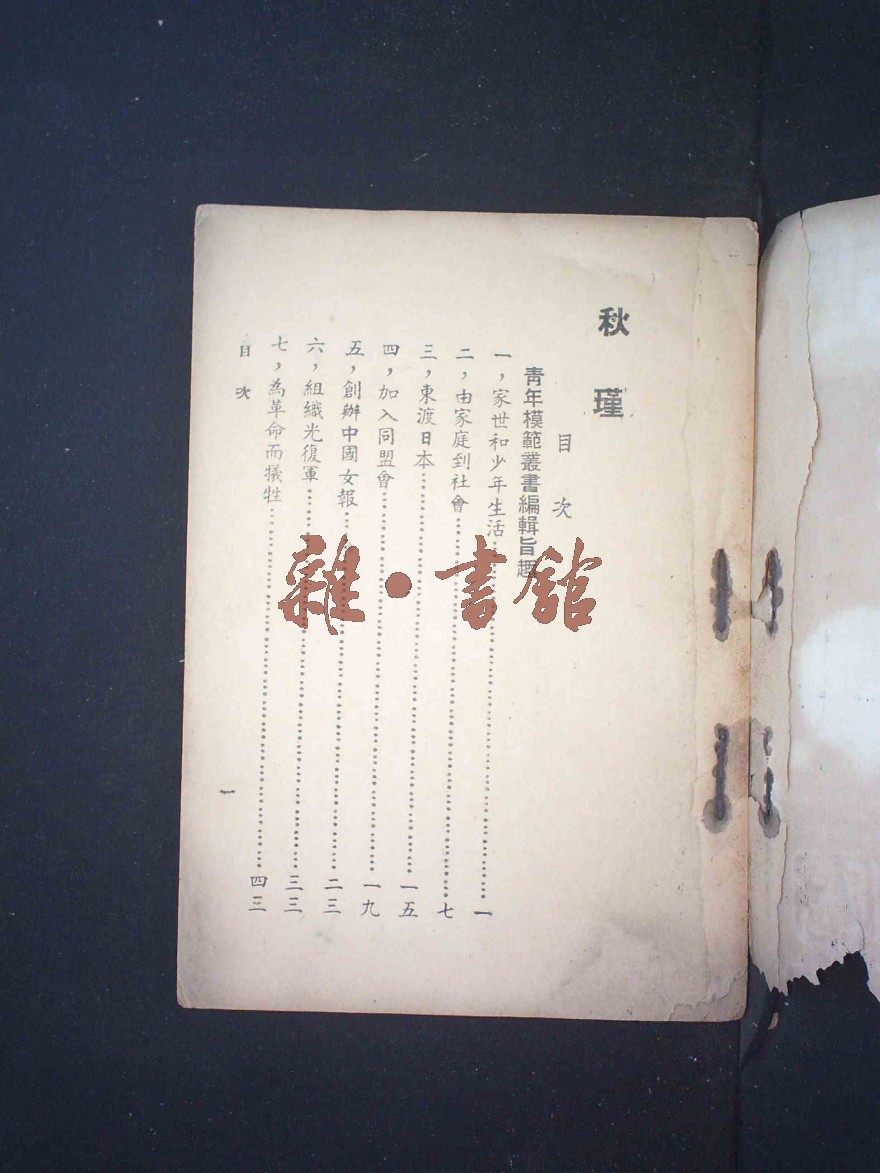 秋瑾
目次
青年模範叢書編輯旨趣
一，家世和少年生活……一
二，由家庭到社會……七
三，東渡日本……一五
四，加入同盟會……一九
五，創辦中國女報……二三
六，組織光復軍……三三
七，為革命而犧牲……四三
目次
一
雜·書館